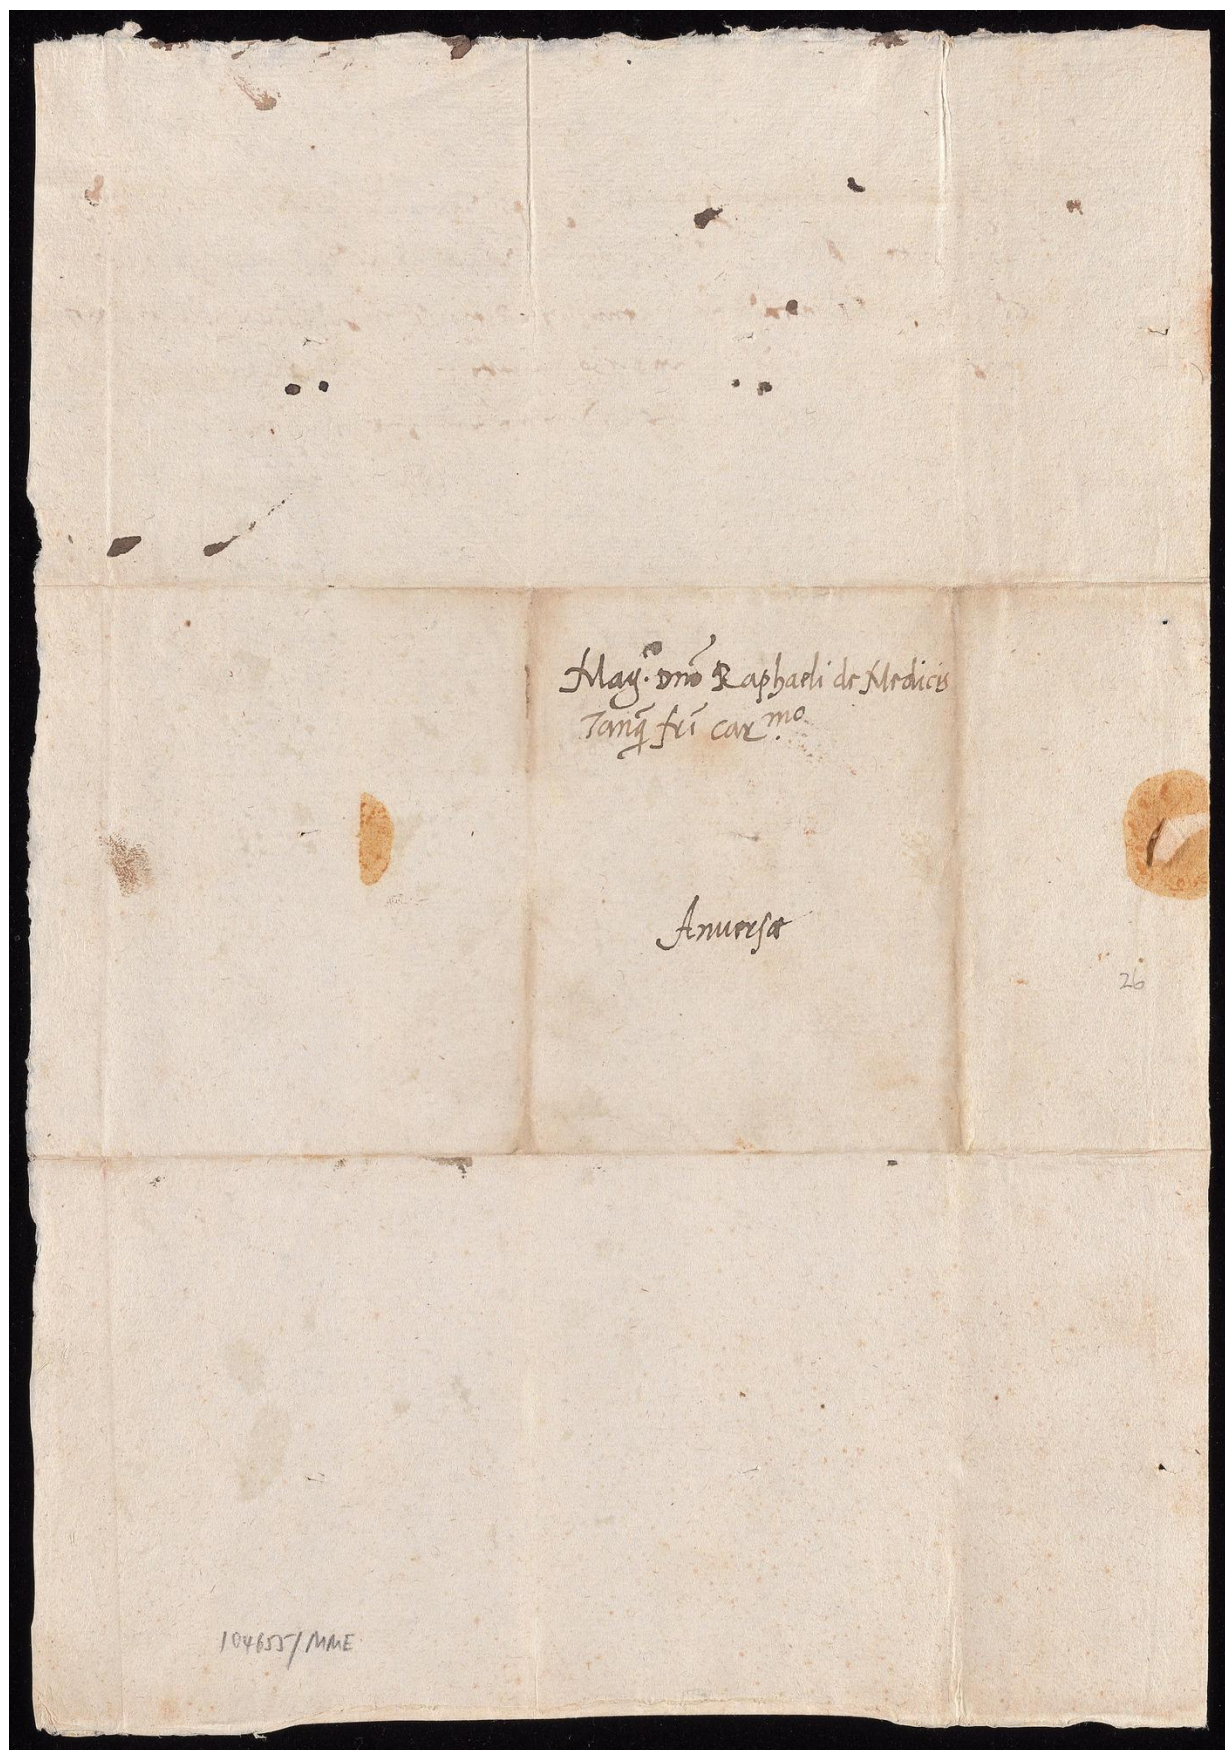 Mag.co Dnō Raphaeli de Medicis
Tanq̃ frī carmo.
Anversæ
26
104655/MME